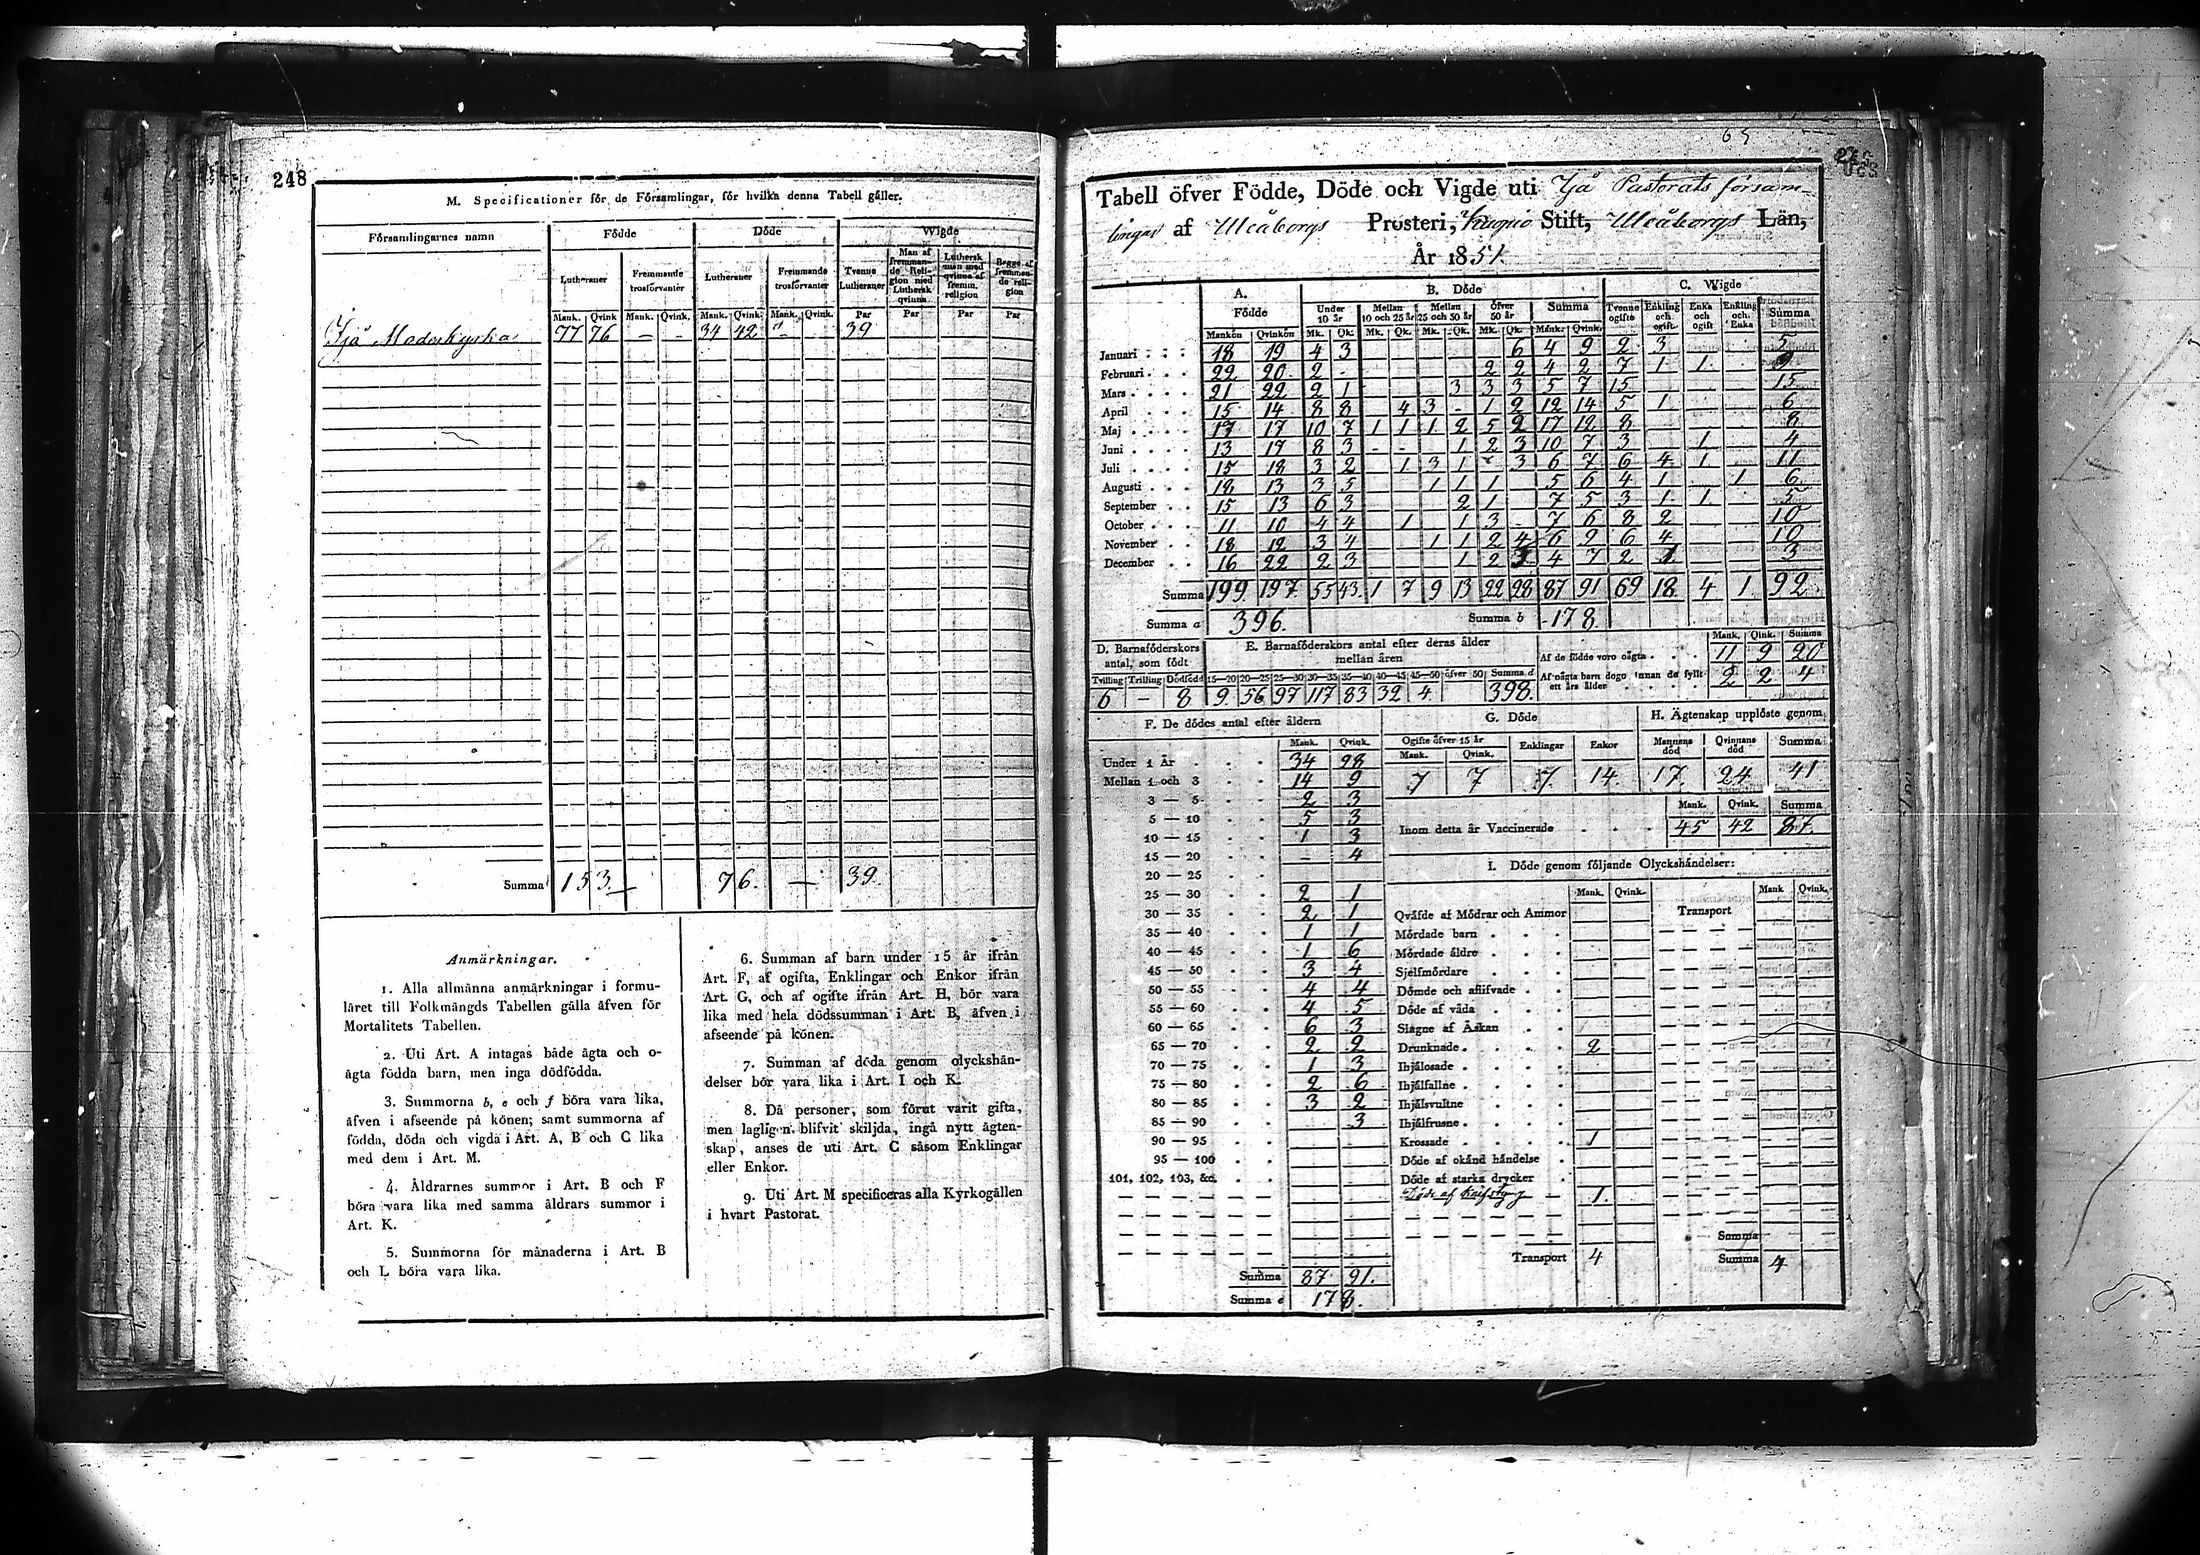 248
M. Specificationer för de Församlingar, för hvilka denna Tabell gäller.
Församlingarnes namn | Födde | Döde | Wigde
Lutheraner | Fremmande trosförvanter | Lutheraner | Fremmande trosförvanter | Tvenne Lutheraner | Man af fremmande Religion med Luthersk qvinna | Luthersk man med qvinna af fremm. religion | Begge af fremmande religion
Mank. | Qvink | Mank. | Qvink. | Mank. | Qvink. | Mank. | Qvink. | Par | Par | Par | Par
Ijå Moderkyrka | 77 | 76 | – | – | 34 | 42 | – | | 39
Summa | 153 | – | 76. | – | 39.
Anmärkningar.
1. Alla allmänna anmärkningar i formu-
läret till Folkmängds Tabellen gälla äfven för
Mortalitets Tabellen.
2. Uti Art. A intagas både ägta och o-
ägta födda barn, men inga dödfödda.
3. Summorna b, e och f böra vara lika,
äfven i afseende på könen; samt summorna af
födda, döda och vigda i Art. A, B och C lika
med dem i Art. M.
4. Åldrarnes summor i Art. B och F
böra vara lika med samma åldrars summor i
Art. K.
5. Summorna för månaderna i Art. B
och L böra vara lika.
6. Summan af barn under 15 år ifrån
Art. F, af ogifta, Enklingar och Enkor ifrån
Art. G, och af ogifte ifrån Art. H, bör vara
lika med hela dödssumman i Art. B, äfven i
afseende på könen.
7. Summan af döda genom olyckshän-
delser bör vara lika i Art. I och K.
8. Då personer, som förut varit gifta,
men lagligen blifvit skiljda, ingå nytt ägten-
skap, anses de uti Art. C såsom Enklingar
eller Enkor.
9. Uti Art. M specificeras alla Kyrkogällen
i hvart Pastorat.
65
Tabell öfver Födde, Döde och Vigde uti Ijå Pastorats försam-
lingar af Uleåborgs Prosteri, Kuopio Stift, Uleåborgs Län,
År 1851.
A. | B. Döde | C. Wigde
Födde | Under 10 år | Mellan 10 och 25 år | Mellan 25 och 50 år | öfver 50 år | Summa | Tvenne ogifte | Enkling och ogift. | Enka och ogift | Enkling och Enka | Summa
Mankön | Qvinkön | Mk. | Qk. | Mk. | Qk. | Mk. | Qk. | Mk. | Qk. | Mank. | Qvink.
Januari | 18 | 19 | 4 | 3 | | | | | | 6 | 4 | 9 | 2 | 3 | | | 5
Februari | 22 | 20 | 2 | - | | | | | 2 | 2 | 4 | 2 | 7 | 1 | 1 | | 9
Mars | 21 | 22 | 2 | 1 | | | | 3 | 3 | 3 | 5 | 7 | 15 | | | | 15
April | 15 | 14 | 8 | 8 | | 4 | 3 | - | 1 | 2 | 12 | 14 | 5 | 1 | | | 6
Maj | 17 | 17 | 10 | 7 | 1 | 1 | 1 | 2 | 5 | 2 | 17 | 12 | 8 | | | | 8
Juni | 13 | 17 | 8 | 3 | - | - | | 1 | 2 | 3 | 10 | 7 | 3 | | 1 | | 4
Juli | 15 | 18 | 3 | 2 | | 1 | 3 | 1 | - | 3 | 6 | 7 | 6 | 4 | 1 | | 11
Augusti | 18 | 13 | 3 | 5 | | | 1 | 1 | 1 | | 5 | 6 | 4 | 1 | | 1 | 6
September | 15 | 13 | 6 | 3 | | | | 2 | 1 | | 7 | 5 | 3 | 1 | 1 | | 5
October | 11 | 10 | 4 | 4 | | 1 | | 1 | 3 | | 7 | 6 | 8 | 2 | | | 10
November | 18 | 12 | 3 | 4 | | | 1 | 1 | 2 | 4 | 6 | 9 | 6 | 4 | | | 10
December | 16 | 22 | 2 | 3 | | | | 1 | 2 | 3 | 4 | 7 | 2 | 1 | | | 3
Summa | 199 | 197 | 55 | 43 | 1 | 7 | 9 | 13 | 22 | 28 | 87 | 91 | 69 | 18 | 4 | 1 | 92
Summa a | 396. | Summa b | 178.
D. Barnaföderskors antal, som födt | E. Barnaföderskors antal efter deras ålder mellan åren | Mank. | Qink. | Summa
Af de födde voro oägta | 11 | 9 | 20
Af oägta barn dogo innan de fyllt ett års ålder | 2 | 2 | 4
Tvilling | Trilling | Dödfödt | 15—20 | 20—25 | 25—30 | 30—35 | 35—40 | 40—45 | 45—50 | öfver 50 | Summa d
6 | – | 8 | 9 | 56 | 97 | 117 | 83 | 32 | 4 | | 398
F. De dödes antal efter åldern
Mank. | Qvink.
Under 1 År | 34 | 28
Mellan 1 och 3 | 14 | 9
3 — 5 | 2 | 3
5 — 10 | 5 | 3
10 — 15 | 1 | 3
15 — 20 | – | 4
20 — 25
25 — 30 | 2 | 1
30 — 35 | 2 | 1
35 — 40 | 1 | 1
40 — 45 | 1 | 6
45 — 50 | 3 | 4
50 — 55 | 4 | 4
55 — 60 | 4 | 5
60 — 65 | 6 | 3
65 — 70 | 2 | 2
70 — 75 | 1 | 3
75 — 80 | 2 | 6
80 — 85 | 3 | 2
85 — 90 | | 3
90 — 95
95 — 100
101, 102, 103, &c.
Summa | 87 | 91.
Summa e | 178.
G. Döde | H. Ägtenskap upplöste genom
Ogifte öfver 15 år | Enklingar | Enkor | Mannens död | Qvinnans död | Summa
Mank. | Qvink.
7 | 7 | 7 | 14 | 17 | 24 | 41
Mank. | Qvink. | Summa
Inom detta år Vaccinerade | 45 | 42 | 87
I. Döde genom följande Olyckshändelser:
Mank. | Qvink. | Mank | Qvink.
Qväfde af Mödrar och Ammor | Transport
Mördade barn
Mördade äldre
Sjelfmördare
Dömde och aflifvade
Döde af våda
Slagne af Åskan
Drunknade | 2
Ihjälosade
Ihjälfallne
Ihjälsvultne
Ihjälfrusne
Krossade | 1
Döde af okänd händelse
Döde af starka drycker
Döde af | 1.
Summa
Transport | 4 | Summa | 4